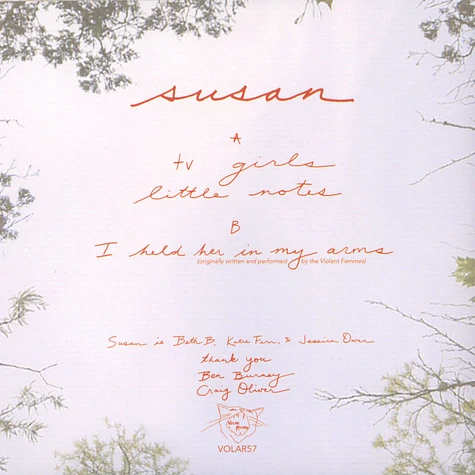 susan
A
tv girls
little notes
B
I held her in my arms
(originally written and performed by the Violent Femmes)
Susan is Beth B, Katie Fern, & Jessica Owen
thank you
Ben Burney
Craig Oliver
VOLAR57